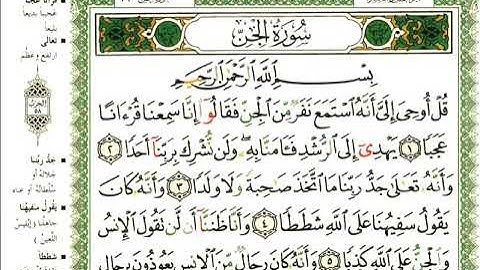 سُورَةُ الْجِنِّ
بِسْمِ اللَّهِ الرَّحْمَنِ الرَّحِيمِ
قُلْ أُوحِيَ إِلَيَّ أَنَّهُ اسْتَمَعَ نَفَرٌ مِّنَ الْجِنِّ فَقَالُوا إِنَّا سَمِعْنَا قُرْءَانًا
عَجَبًا ١ يَهْدِي إِلَى الرُّشْدِ فَـَٔامَنَّا بِهِ وَلَن نُّشْرِكَ بِرَبِّنَا أَحَدًا ٢
وَأَنَّهُ تَعَالَى جَدُّ رَبِّنَا مَا اتَّخَذَ صَاحِبَةً وَلَا وَلَدًا ٣ وَأَنَّهُ كَانَ
يَقُولُ سَفِيهُنَا عَلَى اللَّهِ شَطَطًا ٤ وَأَنَّا ظَنَنَّا أَن لَّن تَقُولَ الْإِنسُ
وَالْجِنُّ عَلَى اللَّهِ كَذِبًا ٥ وَأَنَّهُ كَانَ رِجَالٌ مِّنَ الْإِنسِ يَعُوذُونَ بِرِجَالٍ
قرآناً عجباً
عجيباً بديعاً
بليغاً
تعالى
ارتفع وعظم
الحزب
٥٨
جد ربنا
جلاله أو
سلطانه أو غناه
يقول سفيهنا
جاهلنا (إبليس
اللعين)
شططاً